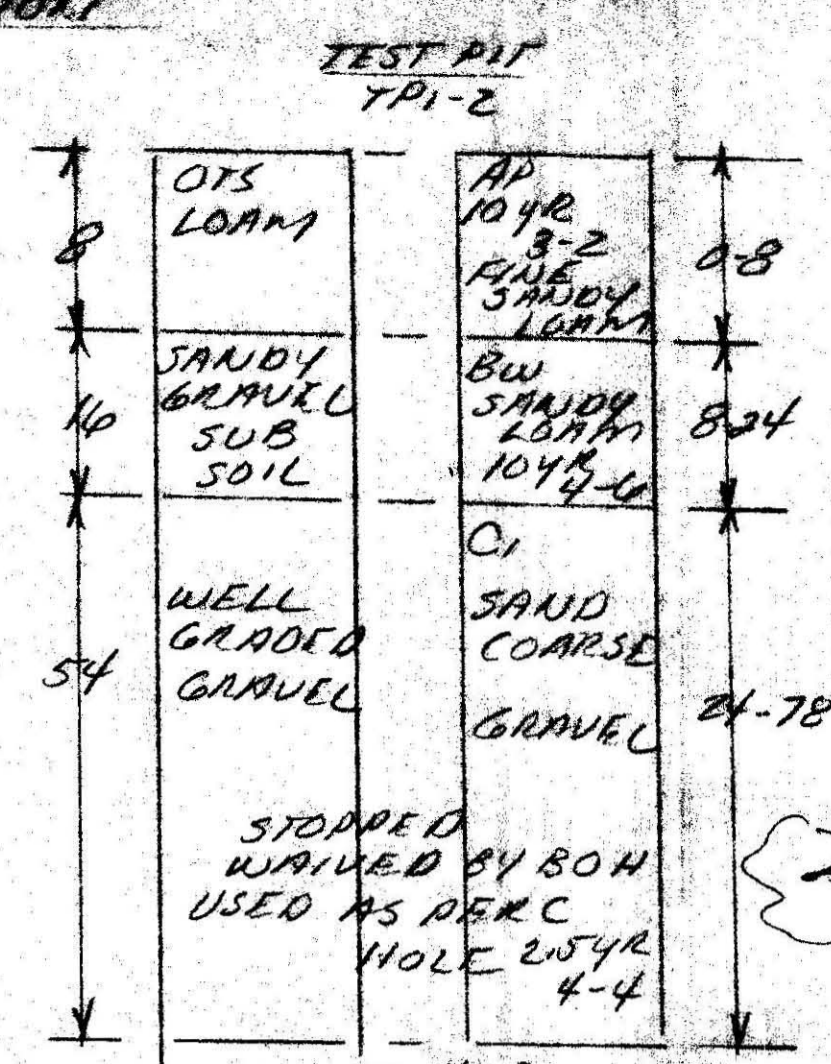 TEST PIT
TP1-2
8
OTS
LOAM
AP
10 YR
3-2
FINE
SANDY
LOAM
0-8
16
SANDY
GRAVEL
SUB
SOIL
BW
SANDY
LOAM
10 YR
4-6
8-24
54
WELL
GRADED
GRAVEL
C1
SAND
COARSE
GRAVEL
24-78
STOPPED
WAIVED BY BOH
USED AS PERC
HOLE 2.5YR
4-4